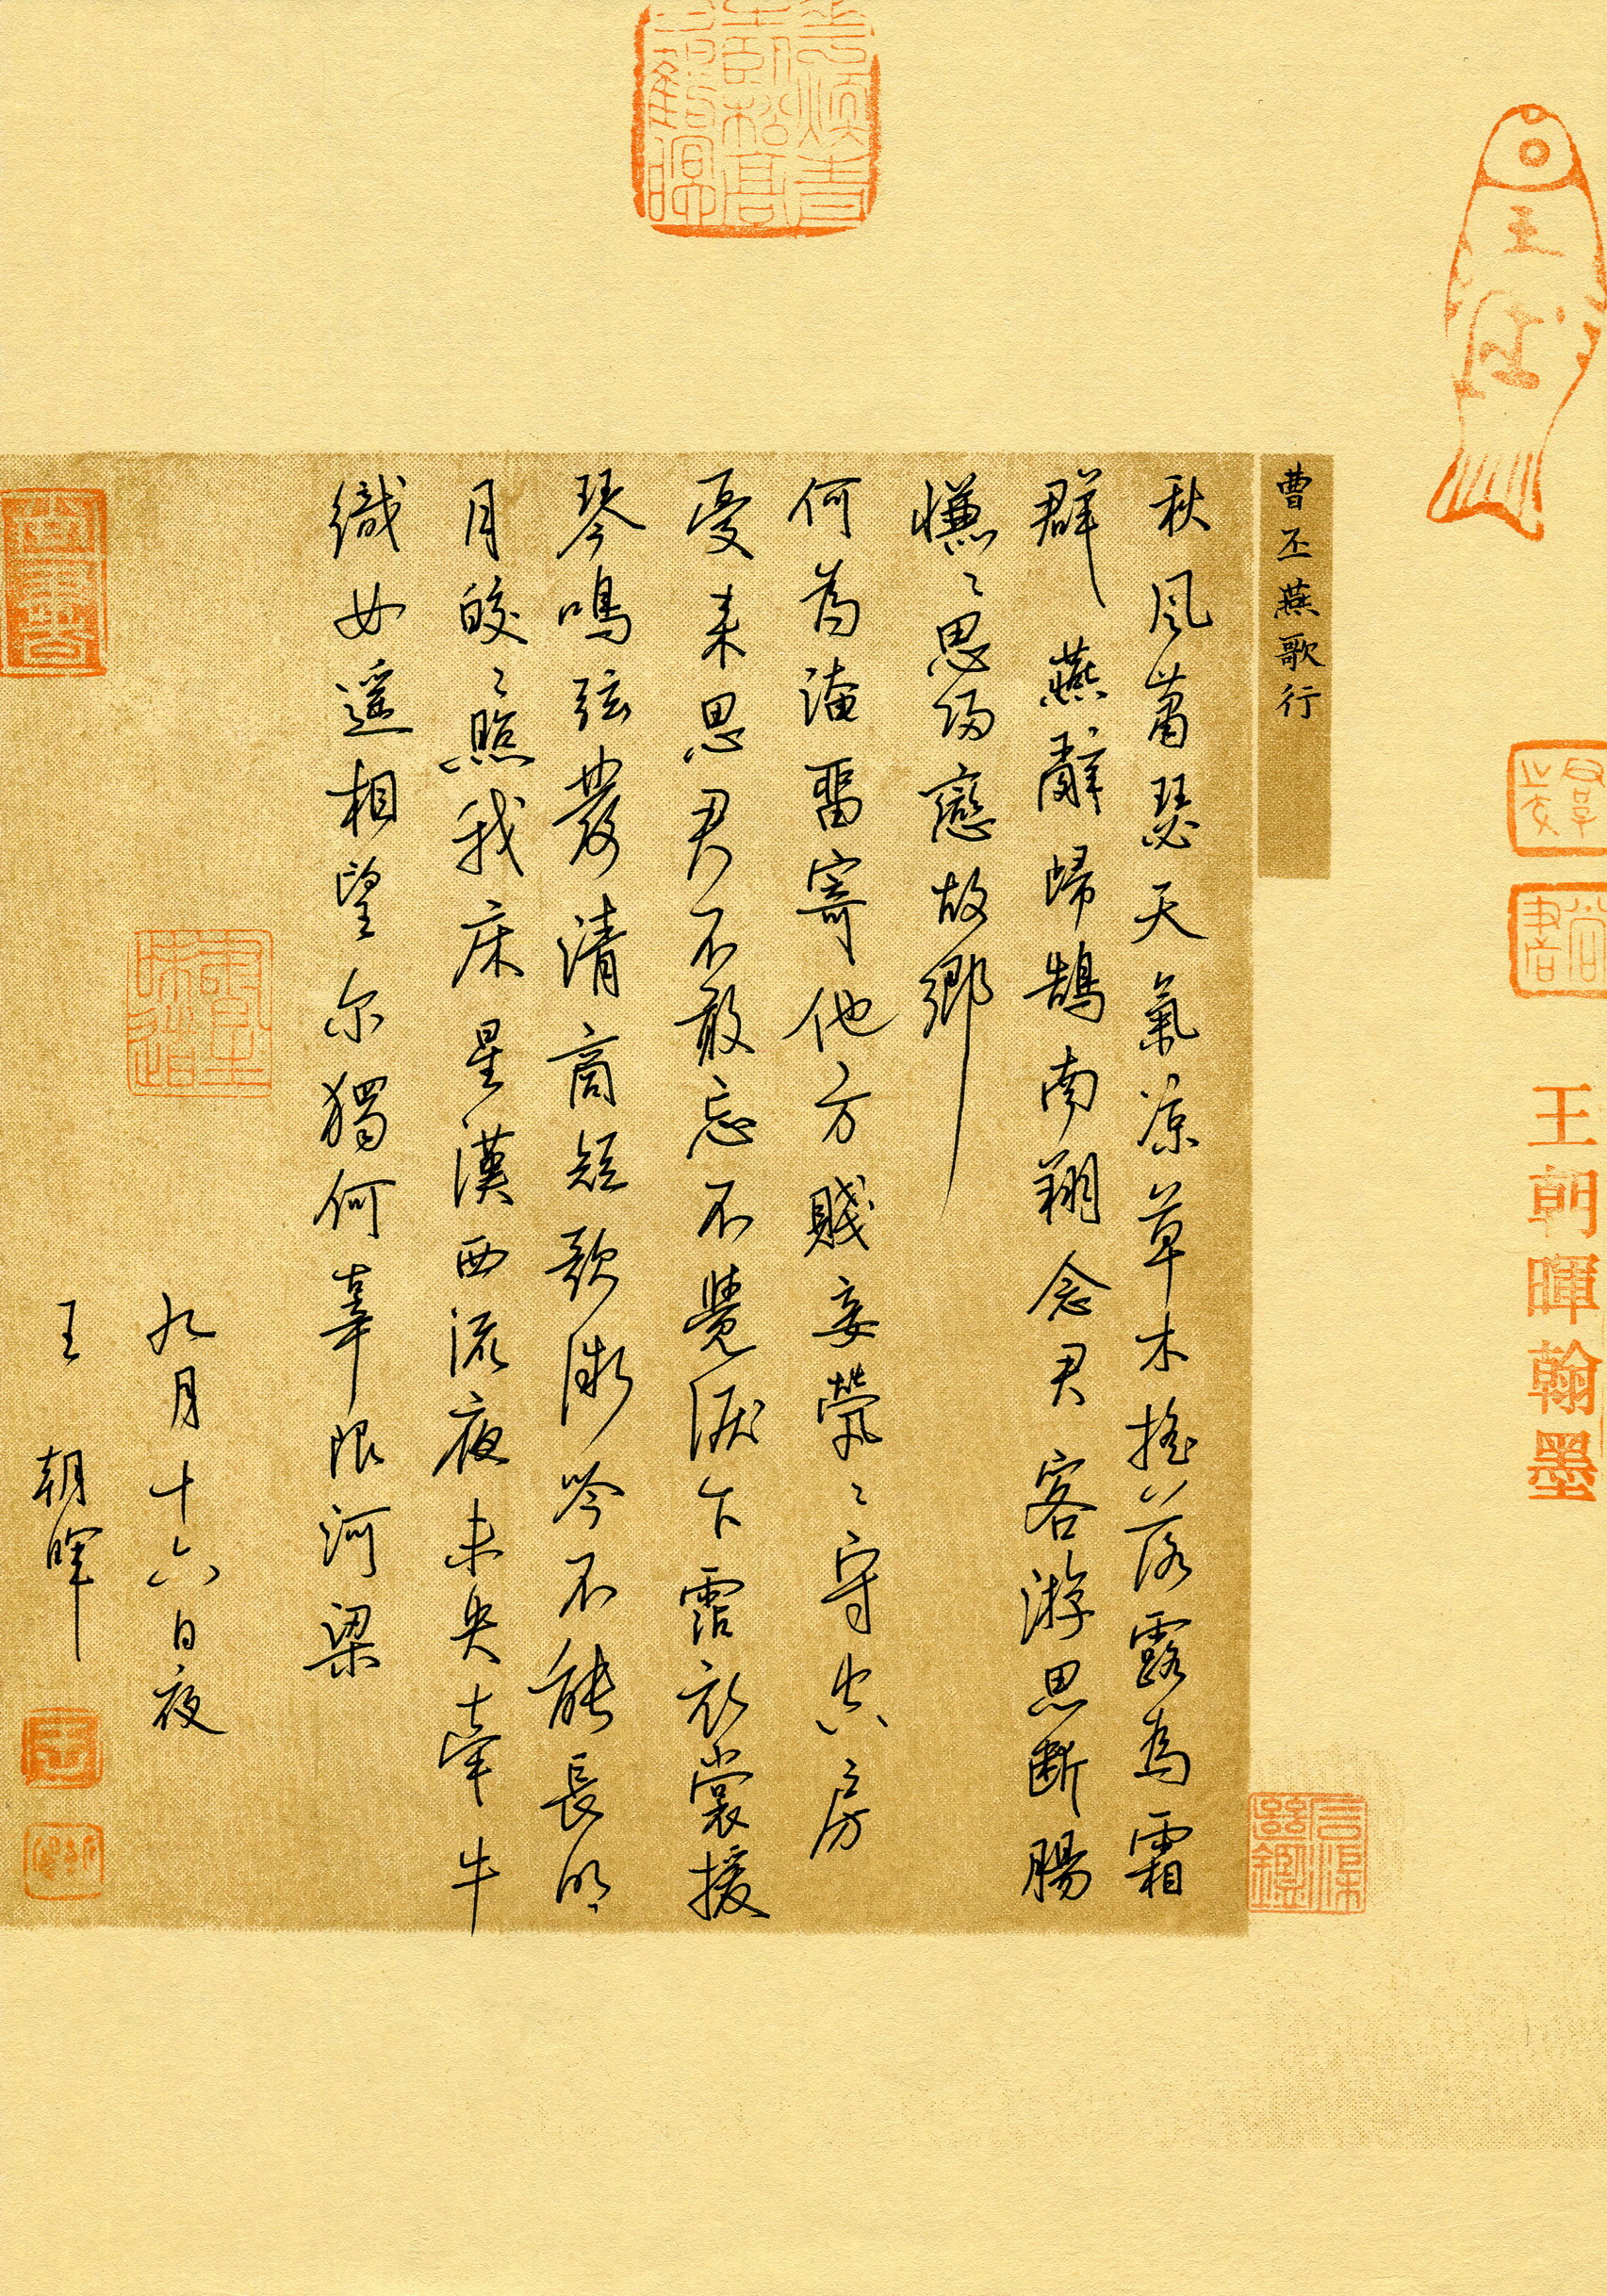 王朝暉翰墨
曹丕燕歌行
秋風蕭瑟天氣凉草木搖落露為霜
群燕辭歸鵠南翔念君客游思斷腸
慊〻思歸戀故鄉
何為淹畱寄他方賤妾煢〻守空房
憂來思君不敢忘不覺淚下霑衣裳援
琴鳴弦發清商短歌微吟不能長明
月皎〻照我床星漢西流夜未央牽牛
織女遥相望尔獨何辜限河梁
九月十六日夜
王朝暉